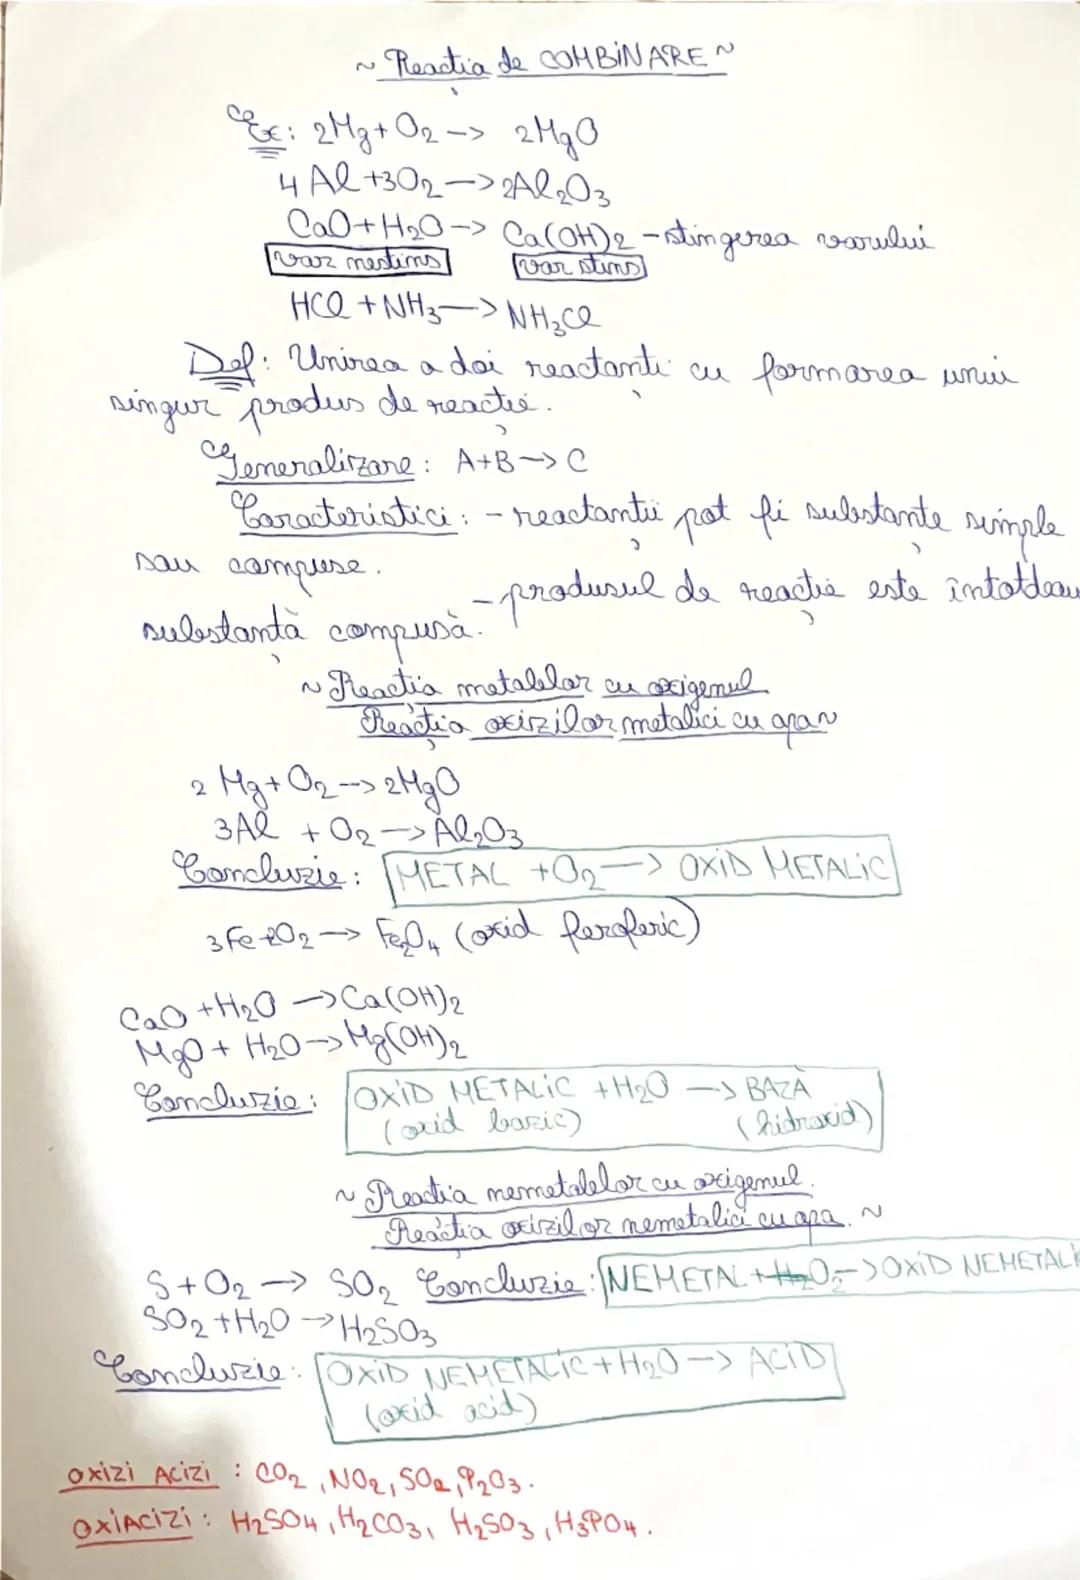 ~ Reactia de COMBINARE ~
Ex: 2Mg + O2 -> 2MgO
4 Al + 3O2 -> 2Al2O3
CaO + H2O -> Ca(OH)2 - stingerea varului
var nestins var stins
HCl + NH3 -> NH3Cl
Def: Unirea a doi reactanți cu formarea unui
singur produs de reacție.
Generalizare: A + B -> C
Caracteristici: - reactanții pot fi substanțe simple
sau compuse.
- produsul de reacție este întotdeau
substanță compusă.
~ Reacția metalelor cu oxigenul
Reacția oxizilor metalici cu apa ~
2 Mg + O2 -> 2MgO
3Al + O2 -> Al2O3
Concluzie: METAL + O2 -> OXID METALIC
3Fe + 2O2 -> Fe2O4 (oxid feroferic)
CaO + H2O -> Ca(OH)2
MgO + H2O -> Mg(OH)2
Concluzie: OXID METALIC + H2O -> BAZĂ
(oxid bazic) (hidroxid)
~ Reacția nemetalelor cu oxigenul.
Reacția oxizilor nemetalici cu apa. ~
S + O2 -> SO2 Concluzie: NEMETAL + O2 -> OXID NEMETALI
SO2 + H2O -> H2SO3
Concluzie: OXID NEMETALIC + H2O -> ACID
(oxid acid)
OXIZI ACIZI : CO2, NO2, SO2, P2O3.
OXIACIZI: H2SO4, H2CO3, H2SO3, H3PO4.